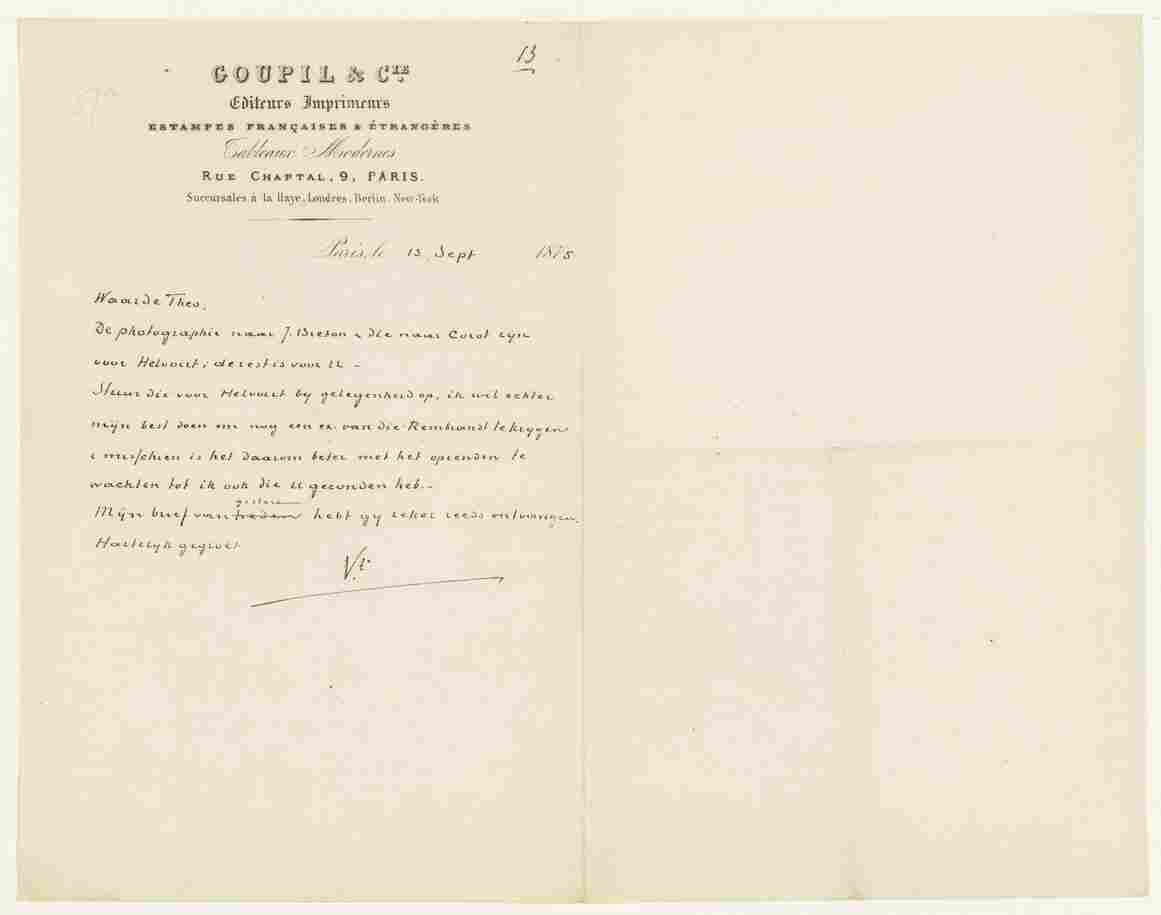 13
GOUPIL & CIE
Editeurs Imprimeurs
ESTAMPES FRANÇAISES & ÉTRANGÈRES
Tableaux Modernes
RUE CHAPTAL, 9, PARIS.
Succursales à la Haye, Londres, Berlin, New-York
Paris, le 13 Sept 1875
Waarde Theo,
De photographie naar J. Breton & die naar Corot zijn
voor Helvoirt; de rest is voor U –
Stuur die voor Helvoirt by gelegenheid op, ik wil echter
mijn best doen om nog een ex. van die Rembrandt te krygen
& misschien is het daarom beter met het opzenden te
wachten tot ik ook die U gezonden heb. –
gisteren
Mijn brief van heden hebt gy zeker reeds ontvangen.
Hartelyk gegroet
Vt.